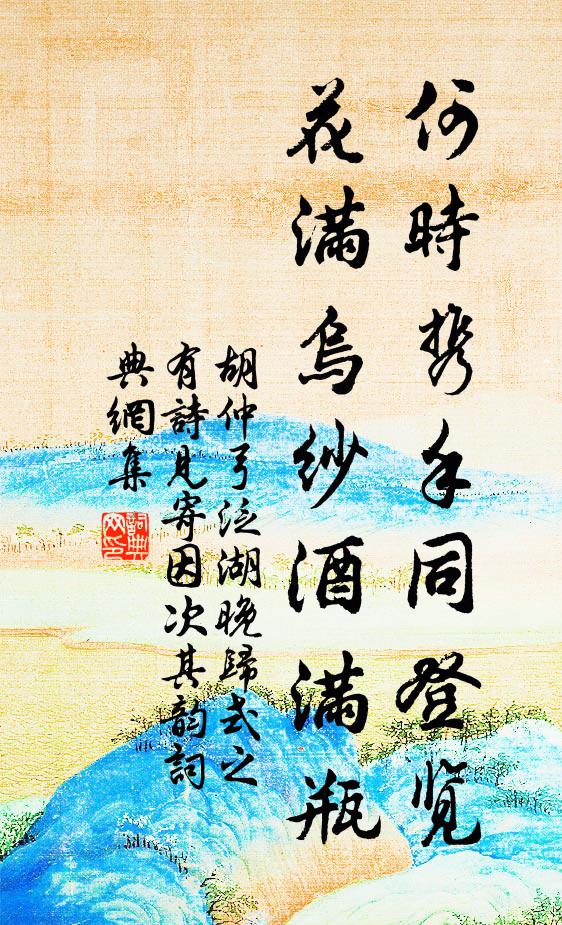 何時携手同登覽
花滿烏紗酒滿瓶
胡仲弓泛湖晚歸式之
有詩見寄因次其韵詞
典網集
詞典
网印